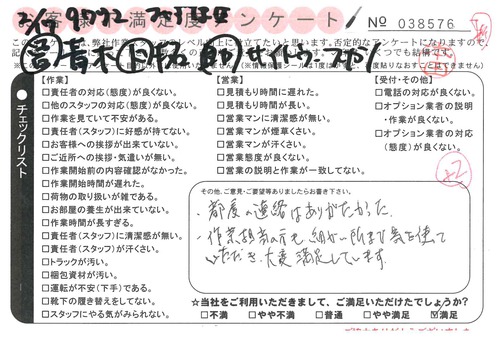 お客様満足度アンケート
No 038576
【作業】
□責任者の対応(態度)が良くない。
□他のスタッフの対応(態度)が良くない。
□作業を見ていて不安がある。
□責任者(スタッフ)に好感が持てない。
□お客様への挨拶が出来ていない。
□ご近所への挨拶・気遣いが無い。
□作業開始前の内容確認がなかった。
□作業開始時間が遅れた。
□荷物の取り扱いが雑である。
□お部屋の養生が出来ていない。
□作業時間が長すぎる。
□責任者(スタッフ)に清潔感が無い。
□責任者(スタッフ)が汗くさい。
□トラックが汚い。
□梱包資材が汚い。
□運転が不安(下手)である。
□靴下の履き替えをしてない。
□スタッフにやる気がみられない。
【営業】
□見積もり時間に遅れた。
□見積もり時間が長い。
□営業マンに清潔感が無い。
□営業マンが煙草くさい。
□営業マンが汗くさい。
□営業態度が良くない。
□営業の説明と作業が一致してない。
【受付・その他】
□電話の対応が良くない。
□オプション業者の説明
・作業が良くない。
□オプション業者の対応
(態度)が良くない。
●チェックリスト
その他、ご意見・ご要望等ありましたらお書き下さい。
・都度の連絡はありがたかった。
・作業担当の方も、細かい所まで気を使って
いただき、大変満足しています。
☆当社をご利用いただきまして、ご満足いただけたでしょうか?
□不満 □やや不満 □普通 □やや満足 ☑満足